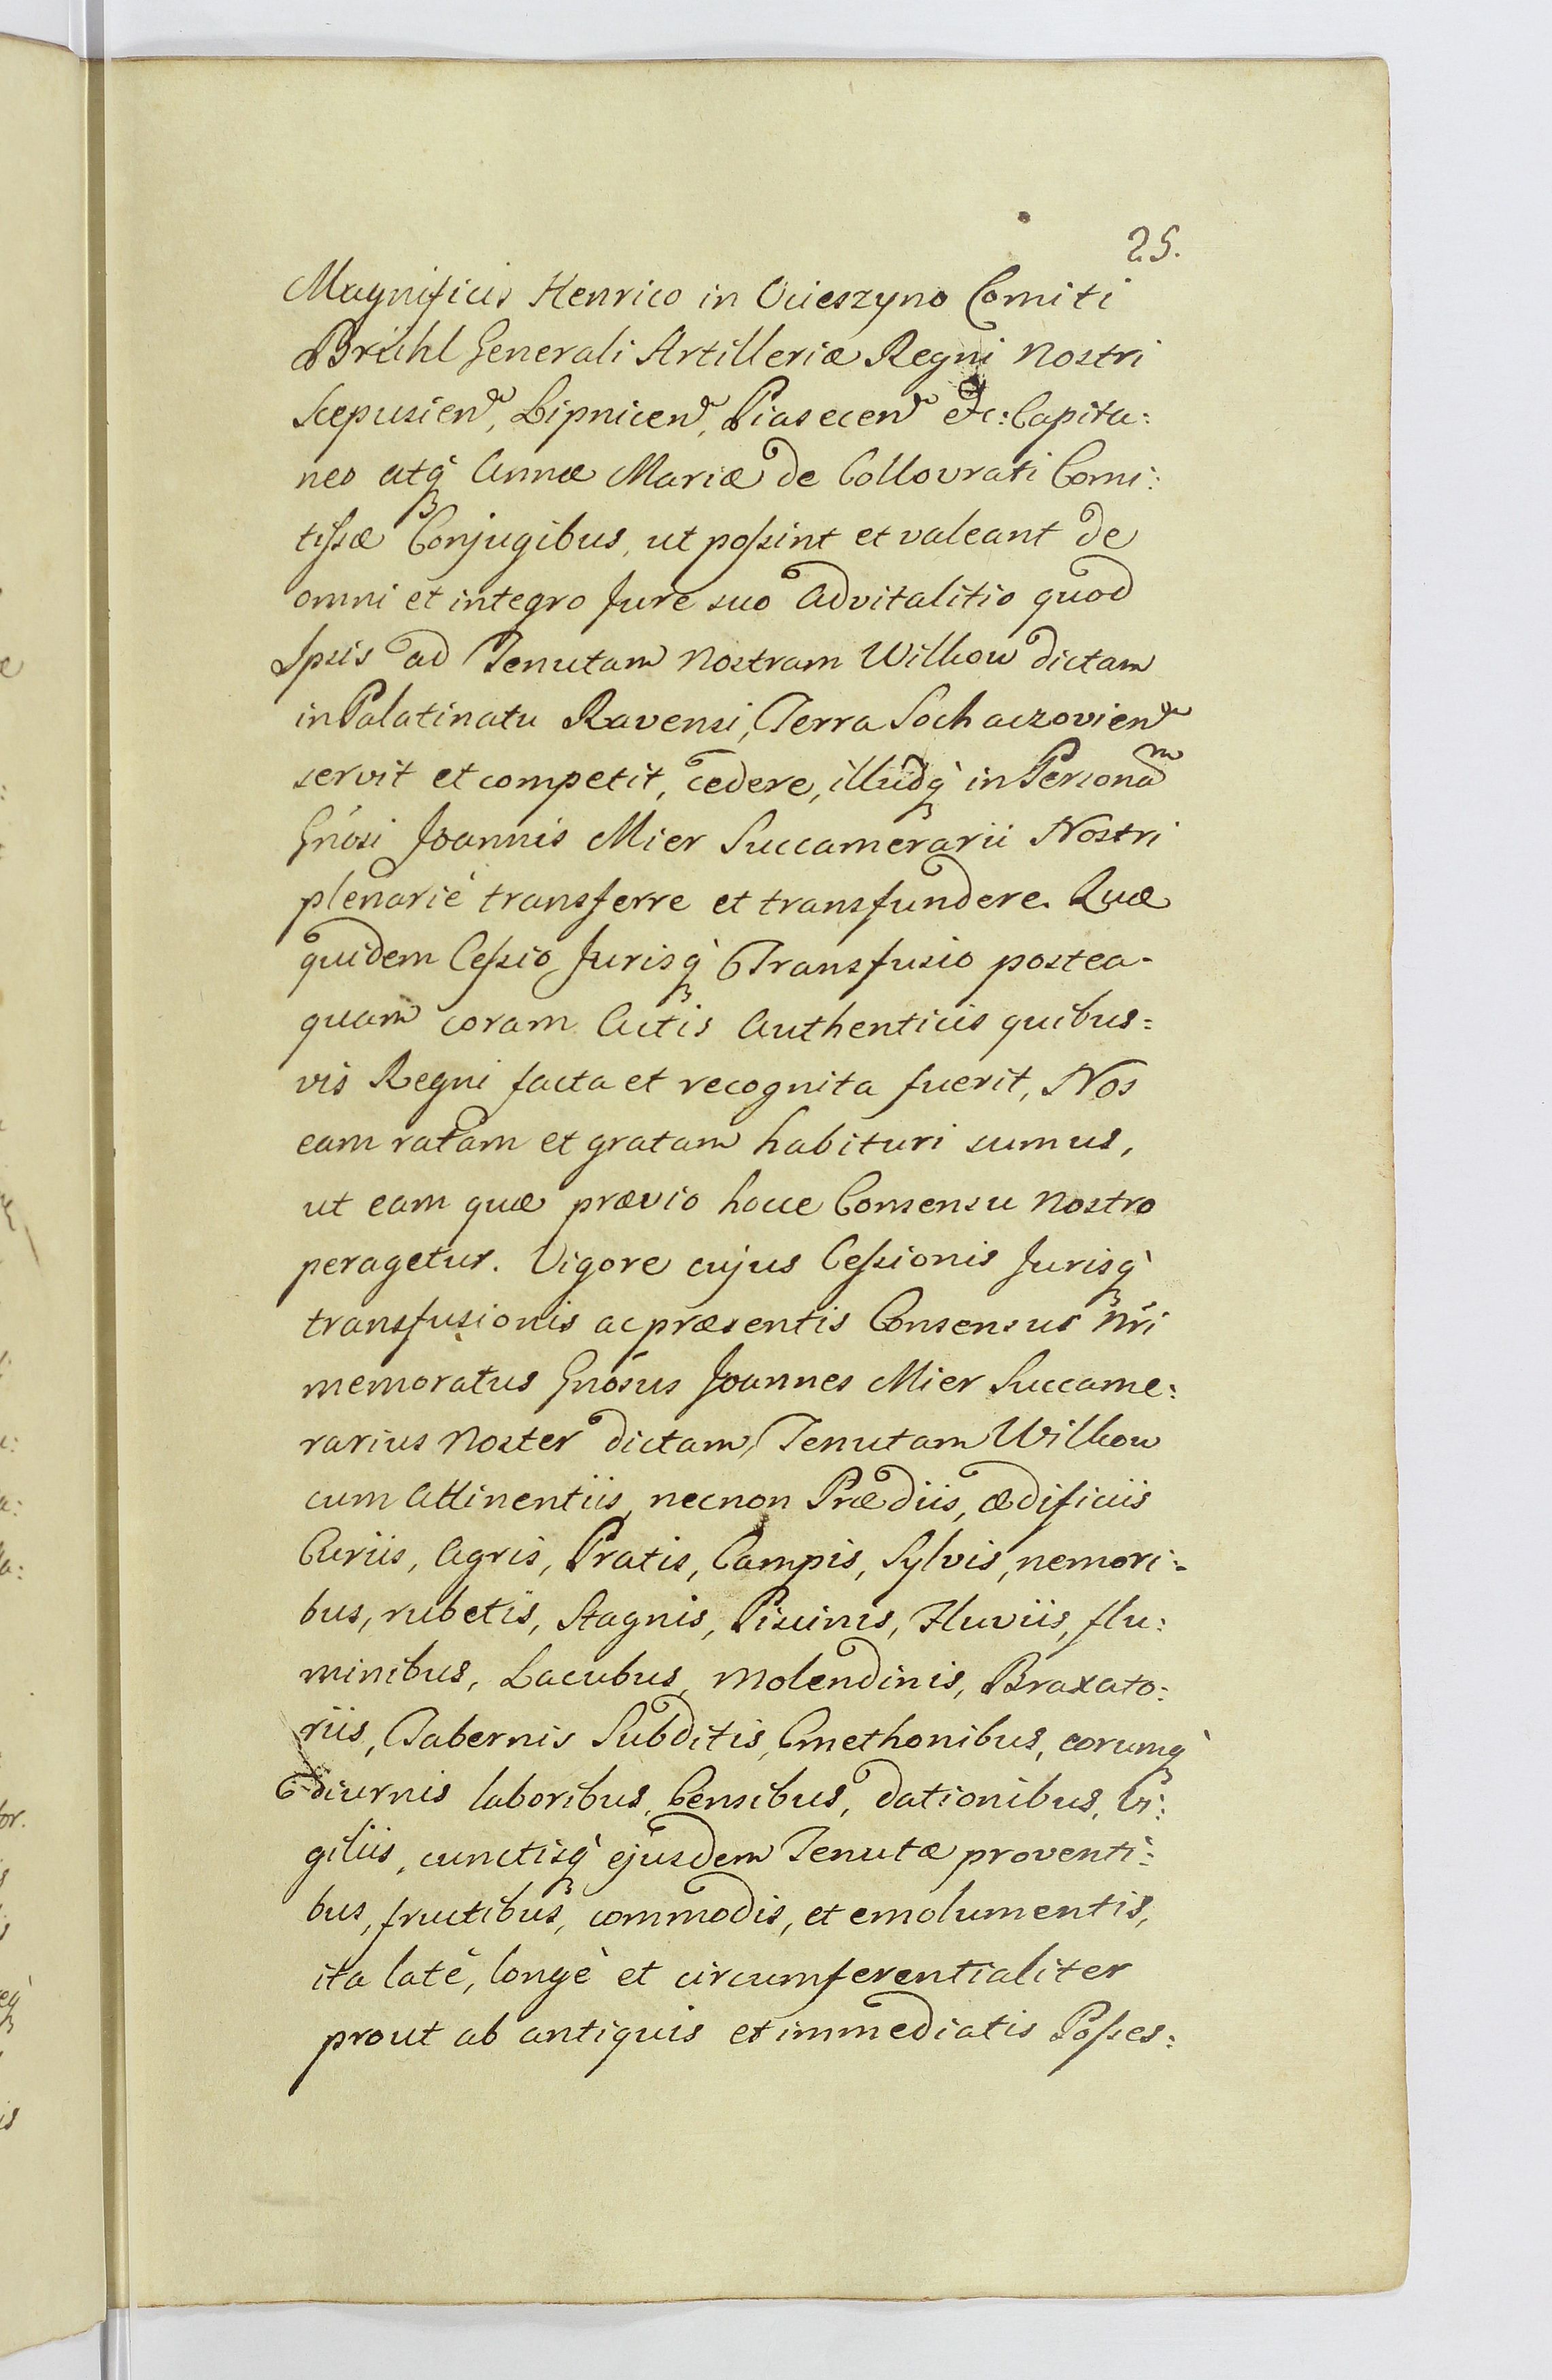 25.
Magnificis Henrico in Ocieszyno Comiti
Brühl Generali Artilleriæ Regni Nostri
Scepusien, Lipnicen, Piasecen etc: Capita:
neo atq Annæ Mariæ de Collovrati Comi:
tißæ Conjugibus, ut poßint et valeant de
omni et integro Jure suo Advitalitio quod
Ipsis ad Tenutam Nostram Wilkow dictam
in Palatinatu Ravensi, Terra Sochaczovien
servit et competit, cedere, illudq in Personam
Gnosi Joannis Mier Succamerarii Nostri
plenariè transferre et transfundere. Quæ
quidem Ceßio Jurisq Transfusio postea-
quam coram Actis Authenticis quibus=
vis Regni facta et recognita fuerit, Nos
eam ratam et gratam habituri sumus,
ut eam quæ prævio hocce Consensu Nostro
peragetur. Vigore cujus Ceßionis Jurisq
transfusionis ac præsentis Consensus Nri
memoratus Gnosus Joannes Mier Succame:
rarius Noster dictam Tenutam Wilkow
cum Attinentiis, necnon Prædiis, ædificiis
Curiis, Agris, Pratis, Campis, Sylvis, nemori=
bus, rubetis, Stagnis, Piscinis, Fluviis, flu:
minibus, Lacubus, Molendinis, Braxato:
riis, Tabernis Subditis, Cmethonibus, eorumq
diurnis laboribus, Censibus, dationibus, Vi:
giliis, cunctisq ejusdem Tenutæ proventi:
bus, fructibus, commodis, et emolumentis,
ita latè, longè et circumferentialiter
prout ab antiquis et immediatis Poßes: